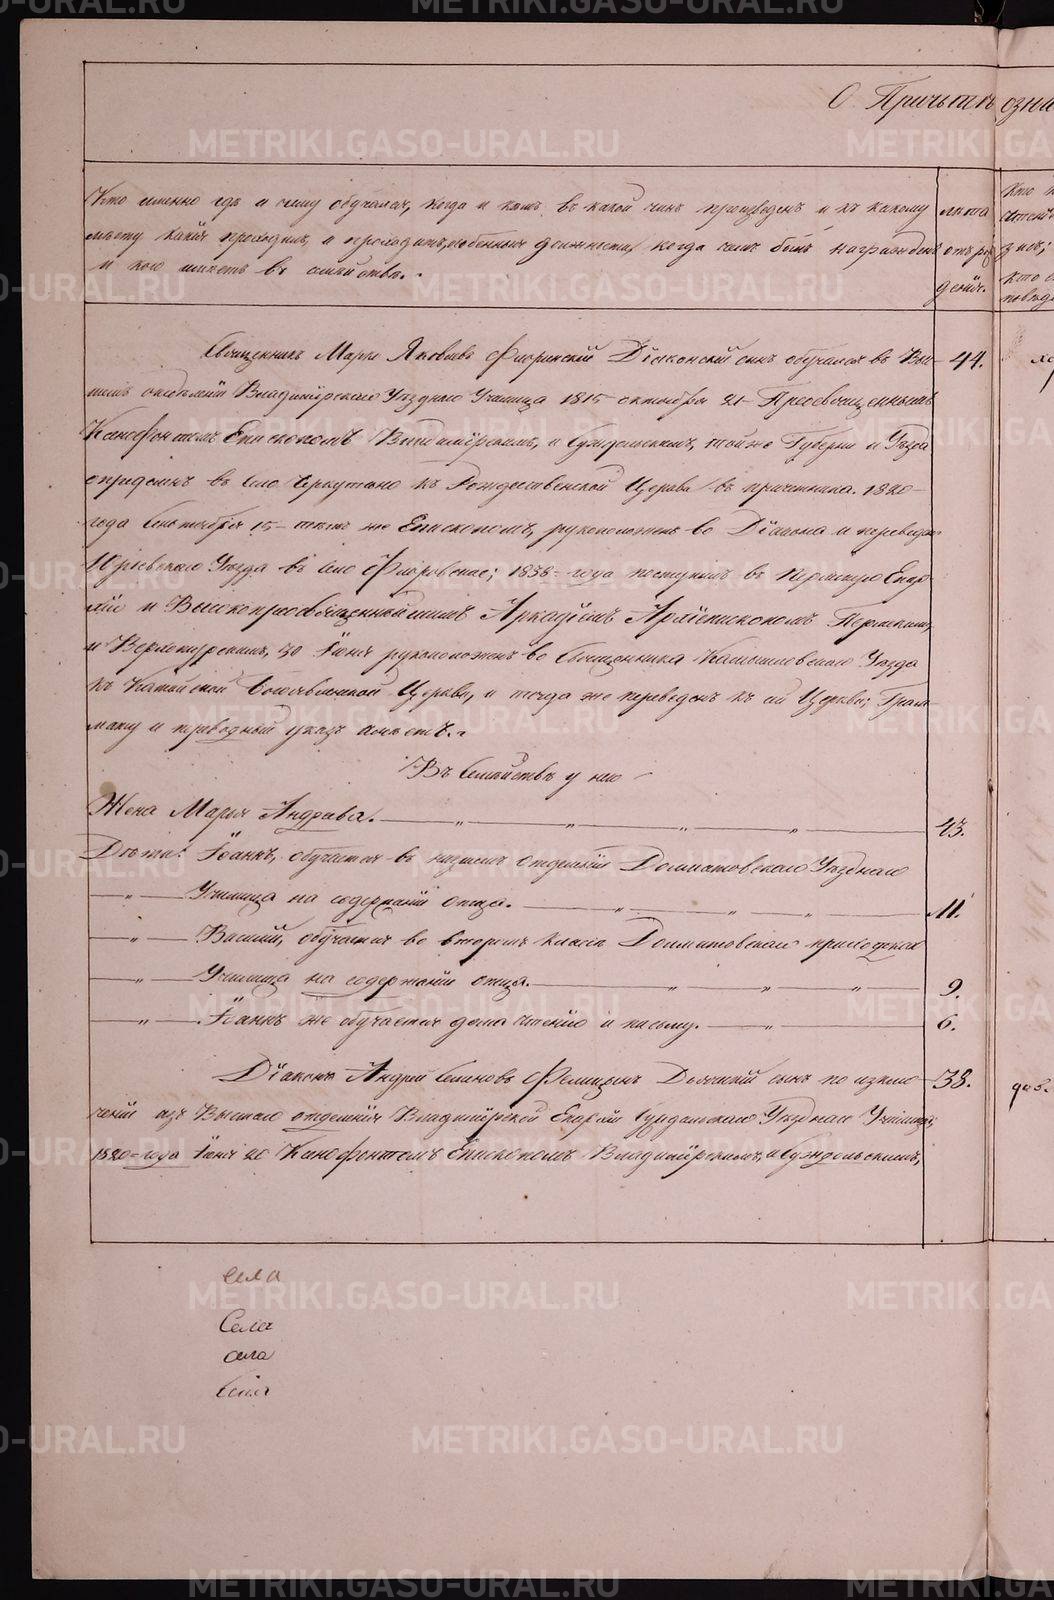 О Причьтѣ озна
Кто именно гдѣ и чему обучался, когда и кѣмъ въ какой чинъ произведенъ и къ какому
мѣсту какія проходилъ, и проходитъ особенныя должности, когда чемъ былъ награжденъ
и кого имѣетъ въ семѣйствѣ.
лѣта
отъ рож
денія.
Священникъ Марко Яковлевъ Флоринскій Діаконскій сынъ обучался въ Выс-
шемъ отделеніи Владимірскаго Уѣзднаго Училища 1815 октября 21 Преосвященнымъ
Ксенофонтомъ Епископомъ Владимірскимъ, и Суждальскимъ, той же Губерніи и Уѣзда
опредѣленъ въ село Черкутино къ Рождественской Церкви въ причетника. 1820-
года Сентября 15 тѣмъ же Епископомъ, рукоположенъ во Діакона и переведенъ
Юрьевскаго Уѣзда въ село Флоровское; 1838 года поступилъ въ Пермскую Епар
хію и Высокопреосвященнѣйшимъ Аркадіемъ Архіепископомъ Пермскимъ,
и Верхотурскимъ, 30 Іюня рукоположенъ во Священника Камышловскаго Уѣзда
къ Катайской Богоявленской Церкви, и тогда же переведенъ къ сей Церкви; Грам
мату и переводный указъ имѣетъ.
Въ Семѣйствѣ у него
Жена Марья Андреева.
Дѣти: Іоаннъ, обучается въ низшемъ отделеніи Долматовскаго Уѣзднаго
Училища на содержаніи отца.
Василій, обучается во второмъ классѣ Долматовскаго приходскаго
Училища на содержаніи отца.
Іоаннъ же обучается дома чтенію и письму.
Діаконъ Андрей Семеновъ Фелицынъ Дьячскій сынъ по исклю
ченіи изъ Высшаго отделенія Владимірской Епархіи Суздальскаго Уѣзднаго Училища,
1820 года Іюня 20 Ксенофонтомъ Епископомъ Владимірскимъ, и Суждальскимъ,
44.
43.
11.
9.
6.
38.
села
Села
села
Села
METRIKI.GASO-URAL.RU